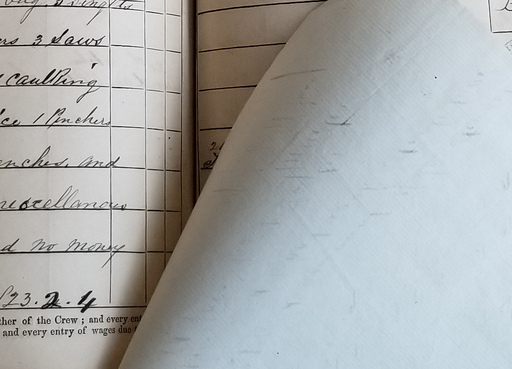 3 Saws
Caulking
1 Pinchers
and
miscellanous
d no money
£23.2.4
ther of the Crew; and every ent
and every entry of wages due